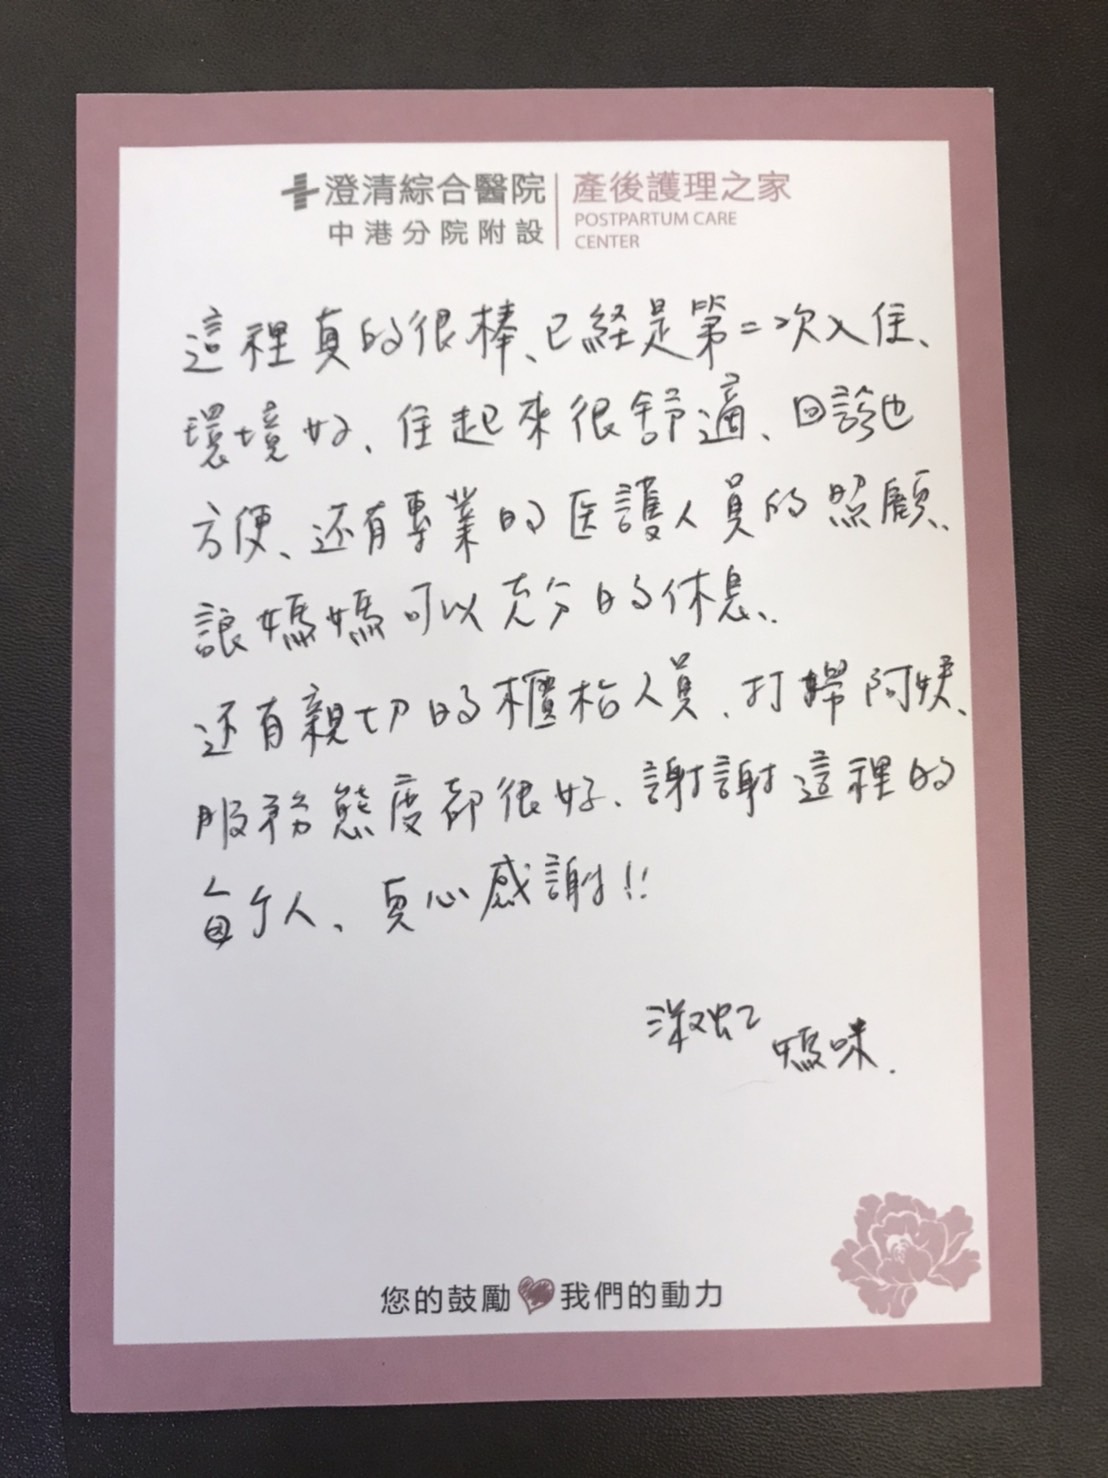 澄清綜合醫院
中港分院附設
產後護理之家
POSTPARTUM CARE
CENTER
這裡真的很棒、已経是第二次入住、
環境好、住起來很舒適、回診也
方便、还有專業的医護人員的照顧、
讓媽媽可以充分的休息、
还有親切的櫃枱人員、打掃阿姨、
服務態度都很好、謝謝這裡的
每个人、真心感謝!!
淑虹 媽咪.
您的鼓勵 我們的動力